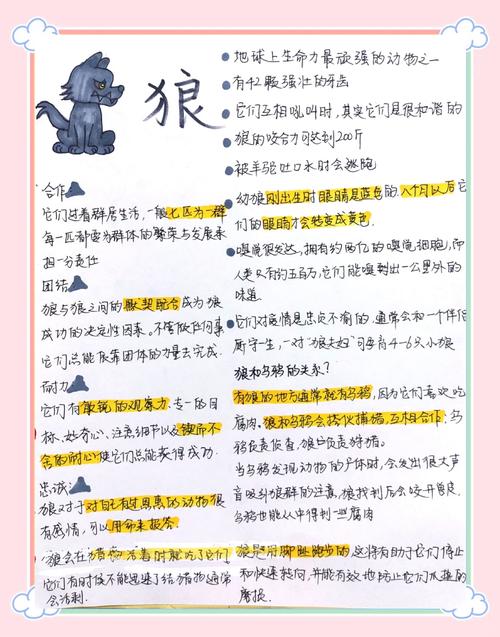 狼
合作
它们过着群居生活，一般七匹为一群
每一匹都要为群体的繁荣与发展承
担一分责任
团结
狼与狼之间的默契配合成为狼
成功的决定性因素。不管做任何事
它们总能依靠团体的力量去完成.
耐力
它们有敏锐的观察力、专一的目
标、好奇心、注意细节以及锲而不
舍的耐心使它们总能获得成功.
忠诚
狼对于对自己有过恩惠的动物很
有感情，可以用命来报答.
狼会在猎物活着时就吃了它们
它们有时候不能迅速了结猎物通常
会活剥.
地球上生命力最顽强的动物之一
有42颗强壮的牙齿
它们互相吼叫时，其实它们是很和谐的
狼的咬合力可达到200斤
被羊驼吐口水时会逃跑
幼狼刚出生时眼睛是蓝色的.八个月以后它
们的眼睛才会转变成黄色.
嗅觉很发达，拥有约两亿的嗅觉细胞，而
人类只有约五百万，它们能嗅到出一公里外的
味道.
它们对爱情是忠贞不渝的.通常会和一个伴侣
厮守一生，一对"狼夫妇"可孕育4-6只小狼
狼和乌鸦的关系？
有狼的地方通常就有乌鸦，因为它们喜欢吃
腐肉。狼和乌鸦会搭伙捕猎，互相合作：乌
鸦负责侦查，狼负责狩猎。
当乌鸦发现动物的尸体时，会发出很大声
音吸引狼群的注意，狼找到后会咬开兽皮
乌鸦也能从中得到一些腐肉
狼是用脚趾跑步的.这将有助于它们停止
和快速转向，并能有效地防止它们爪垫的
磨损.